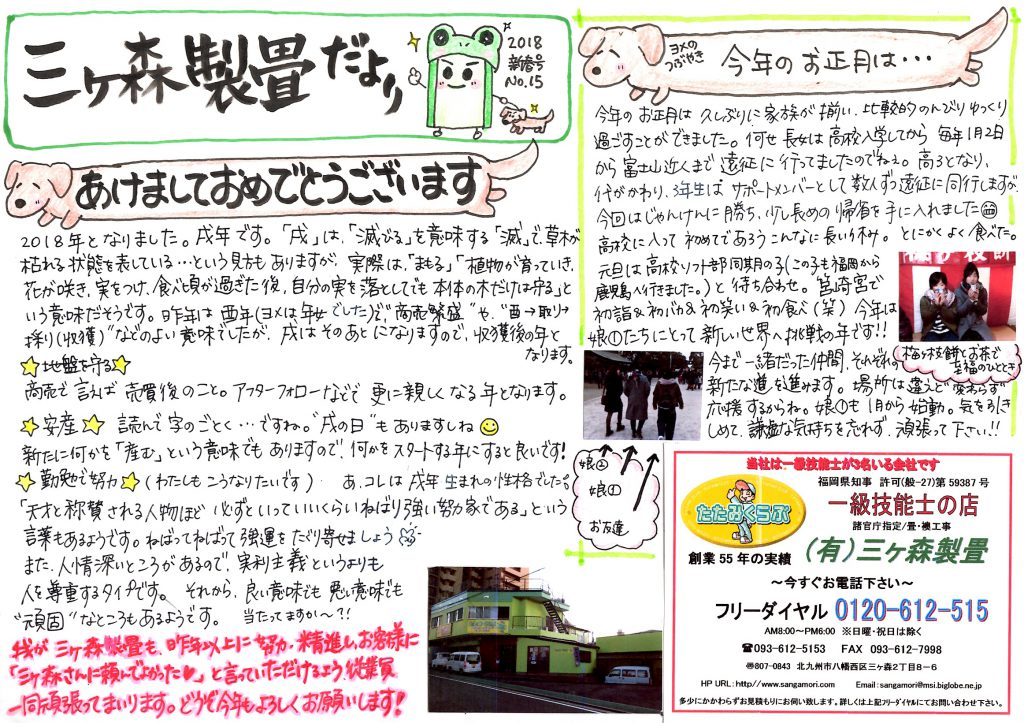 三ヶ森製畳だより
2018
新春号
No.15
あけましておめでとうございます
2018年となりました。戌年です。「戌」は、「滅びる」を意味する「滅」で、草木が
枯れる状態を表している…という見方もありますが、実際は、「まもる」「植物が育っていき、
花が咲き、実をつけ、食べ頃が過ぎた後、自分の実を落としてでも本体の木だけは守る」と
いう意味だそうです。昨年は酉年(ヨメは年女でした)で"商売繁盛"や、"酉→取り→
採り(収獲)"などのよい意味でしたが、戌はそのあとになりますので、収獲後の年と
なります。
☆地盤を守る☆
商売で言えば売買後のこと。アフターフォローなどで更に親しくなる年となります。
☆安産☆ 読んで字のごとく…ですね。"戌の日"もありますしね
新たに何かを「産む」という意味でもありますので、何かをスタートする年にすると良いです!
☆勤勉で努力☆(わたしもこうなりたいです) あ、コレは戌年生まれの性格でした。
「天才と称賛される人物ほど必ずといっていいくらいねばり強い努力家である」という
言葉もあるようです。ねばってねばって強運をたぐり寄せましょう
また、人情深いところがあるので、実利主義というよりも
人を尊重するタイプです。それから、良い意味でも悪い意味でも
"頑固"なところもあるようです。当たってますか〜?!
我が三ヶ森製畳も、昨年以上に努力・精進し、お客様に
「三ヶ森さんに頼んでよかった♥」と言っていただけるよう、従業員
一同頑張ってまいります。どうぞ今年もよろしくお願いします!
ヨメのつぶやき
今年のお正月は…
今年のお正月は久しぶりに家族が揃い、比較的のんびりゆっくり
過ごすことができました。何せ長女は高校入学してから毎年1月2日
から富士山近くまで遠征に行ってましたのでねぇ。高3となり、
代がかわり、3年生はサポートメンバーとして数人ずつ遠征に同行しますが、
今回はじゃんけんに勝ち、少し長めの帰省を手に入れました
高校に入って初めてであろうこんなに長いり休み。とにかくよく食べた。
元旦は高校ソフト部同期の子(この子も福岡から
鹿児島へ行きました。)と待ち合わせ。宮崎宮で
初詣&初バカ&初笑い&初食べ(笑) 今年は
娘①たちにとって新しい世界へ挑戦の年です!!
今まで一緒だった仲間、それぞれの
新たな道を進みます。場所は違えど変わらず
応援するからね。娘①も1月から始動。気を引き
しめて、謙虚な気持ちを忘れず、頑張って下さい!!
梅ヶ枝餅とお茶で
幸福のひととき
娘②
娘①
お友達
当社は一級技能士が3名いる会社です
福岡県知事 許可(般-27)第59387号
たたみくらぶ
一級技能士の店
諸官庁指定/畳・襖工事
創業55年の実績
(有)三ヶ森製畳
〜今すぐお電話下さい〜
フリーダイヤル 0120-612-515
AM8:00〜PM6:00 ※日曜・祝日は除く
☎093-612-5153 FAX 093-612-7998
〒807-0843 北九州市八幡西区三ヶ森2丁目8-6
HP URL:http://www.sangamori.com Email:sangamori@msi.biglobe.ne.jp
多少にかかわらずお見積もりにお伺い致します。詳しくは上記フリーダイヤルにてお問い合わせ下さい。